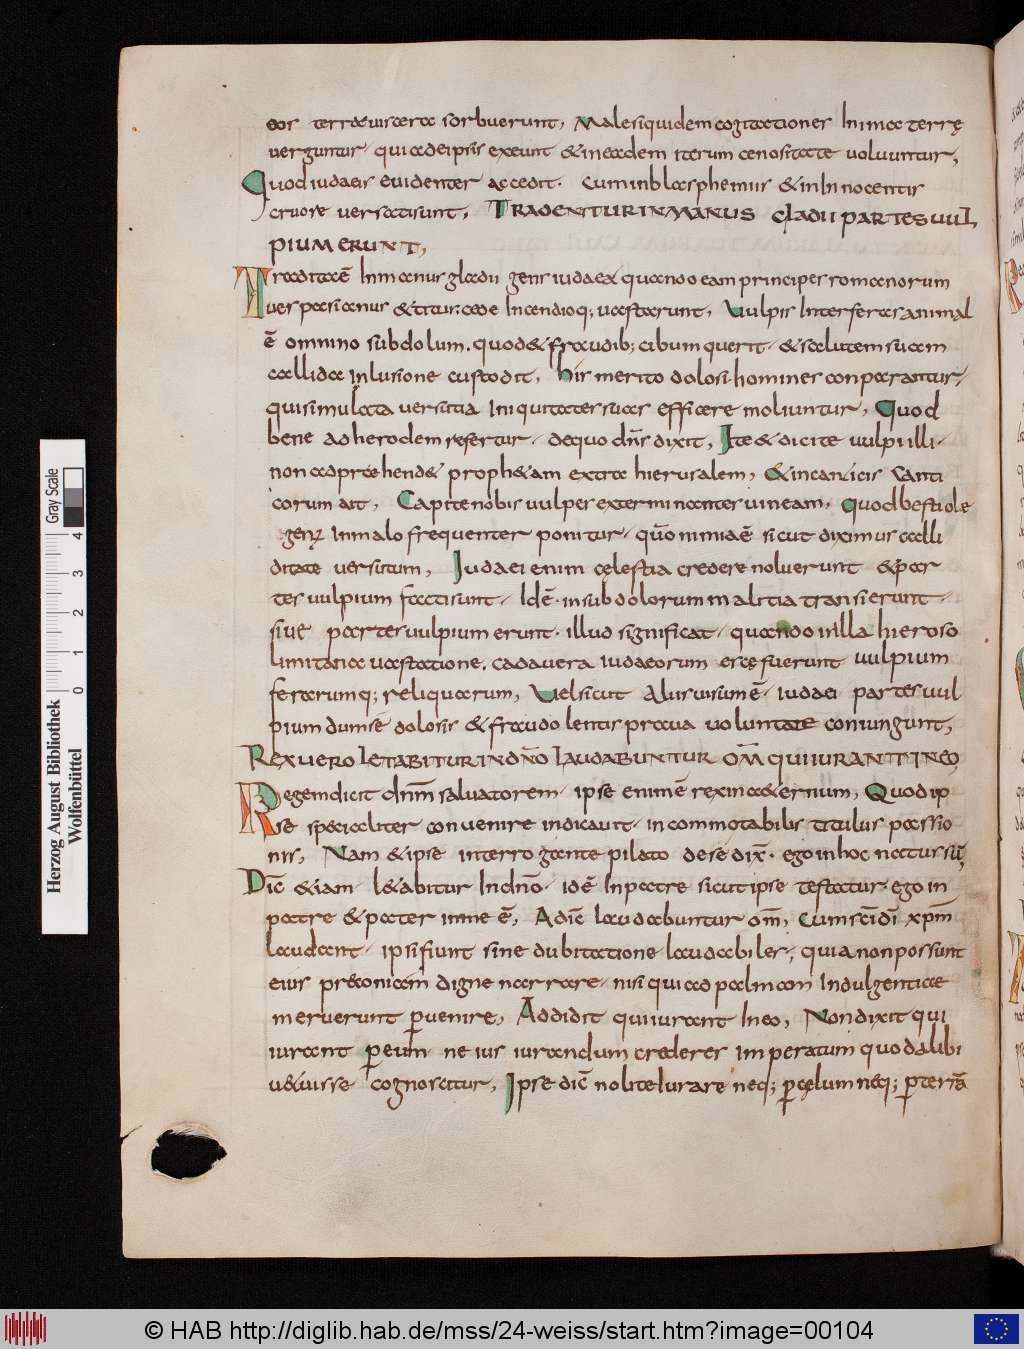 eos terrae viscera sorbuerunt, Male siquidem cogitationes In ima terrę
verguntur qui ad eipsis exeunt & in eadem iterum cenositate voluuntur,
Quod iudaeis evidenter accedit. Cum in blasphemiis & in Innocentis
cruore versati sunt, TRADENTUR IN MANUS GLADII PARTES VUL
PIUM ERUNT,
Tradita ē In manus gladii gens iudaea quando eam principes romanorum
vespasianus & titus cede Incendioq; vastarunt, Vulpis Interferas animal
ē omnino subdolum. quod & fraudib; cibum querit & salutem suam
callida inlusione custodit, His merito dolosi homines conparantur,
qui simulata versutia Iniquitates suas efficere moliuntur, Quod
bene ad herodem refertur de quo dn̄s dixit, Ite & dicite vulpi illi
non adpraehend& proph&am extra hierusalem, & in canticis canti
corum ait, Capite nobis vulpes exterminantes vineam, Quod bestiole
genus In malo frequenter ponitur quō nimiae ē sicut diximus calli
ditate versutum, Iudaei enim cęlestia credere noluerunt & par
tes vulpium facti sunt Idē in subdolorum malitia transierunt
sive partes vulpium erunt. illud significat quando in illa hieroso
limitana vastatione. cadavera iudaeorum escę fuerunt vulpium
ferarumq; reliquarum, Vel sicut aliis visum ē iudaei partes vul
pium dum se dolosis & fraudolentis prava voluntate coniungunt,
REX VERO LETABITUR IN DŃO LAUDABUNTUR OM̄ QUI IURANT IN EO
Regem dicit dn̄m salvatorem ipse enim ē rex in a&ernum, Quod ip
se specialiter convenire indicavit incommotabilis titulus passio
nis, Nam & ipse interrogante pilato de se dix̄. ego in hoc natus sū,
Dic̄ &iam l&abitur In dn̄o id ē In patre sicut ipse testatur ego in
patre & pater in me ē, Adic̄ laudabuntur om̄, Cum sc̄i dī xp̄m
laudant ipsi fiunt sine dubitatione laudabiles, quia non possunt
eius praeconiam digne narrare nisi qui ad palmam Indulgentiae
meruerunt pvenire, Addidit qui iurant In eo, Non dixit qui
iurant p eum ne ius iurandum crederes imperatum quod alibi
v&uisse cognoscitur, Ipse dic̄ nolite Iurare neq; p cęlum neq; p terrā
Herzog August Bibliothek
Wolfenbüttel
Gray Scale
0 1 2 3 4
© HAB http://diglib.hab.de/mss/24-weiss/start.htm?image=00104